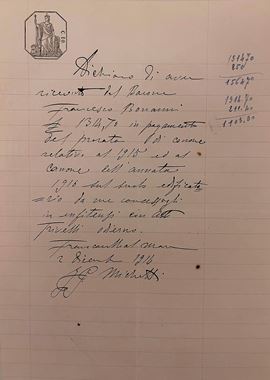 Dichiaro di aver
ricevuto dal Barone
Francesco Bonanni
£ 1314,70 in pagamento
del prorata di canone
relativo al 1915 ed al
canone dell'annata
1916 sul suolo edificato
=rio da me concessogli
in enfiteusi con atto
odierno.
Francavilla al mare
2 dicemb 1916
Michetti
1314,70
250
1564,70
1314.70
211.70
1103.00